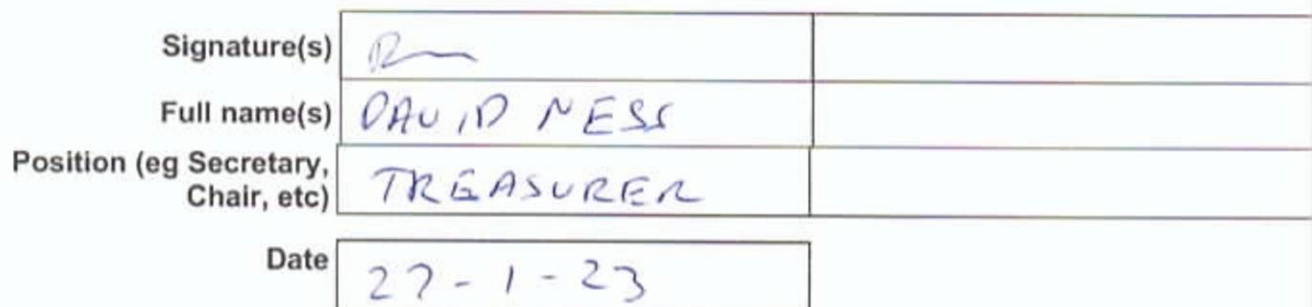 Signature(s)
Full name(s) DAVID NESS
Position (eg Secretary,
Chair, etc) TREASURER
Date 27-1-23